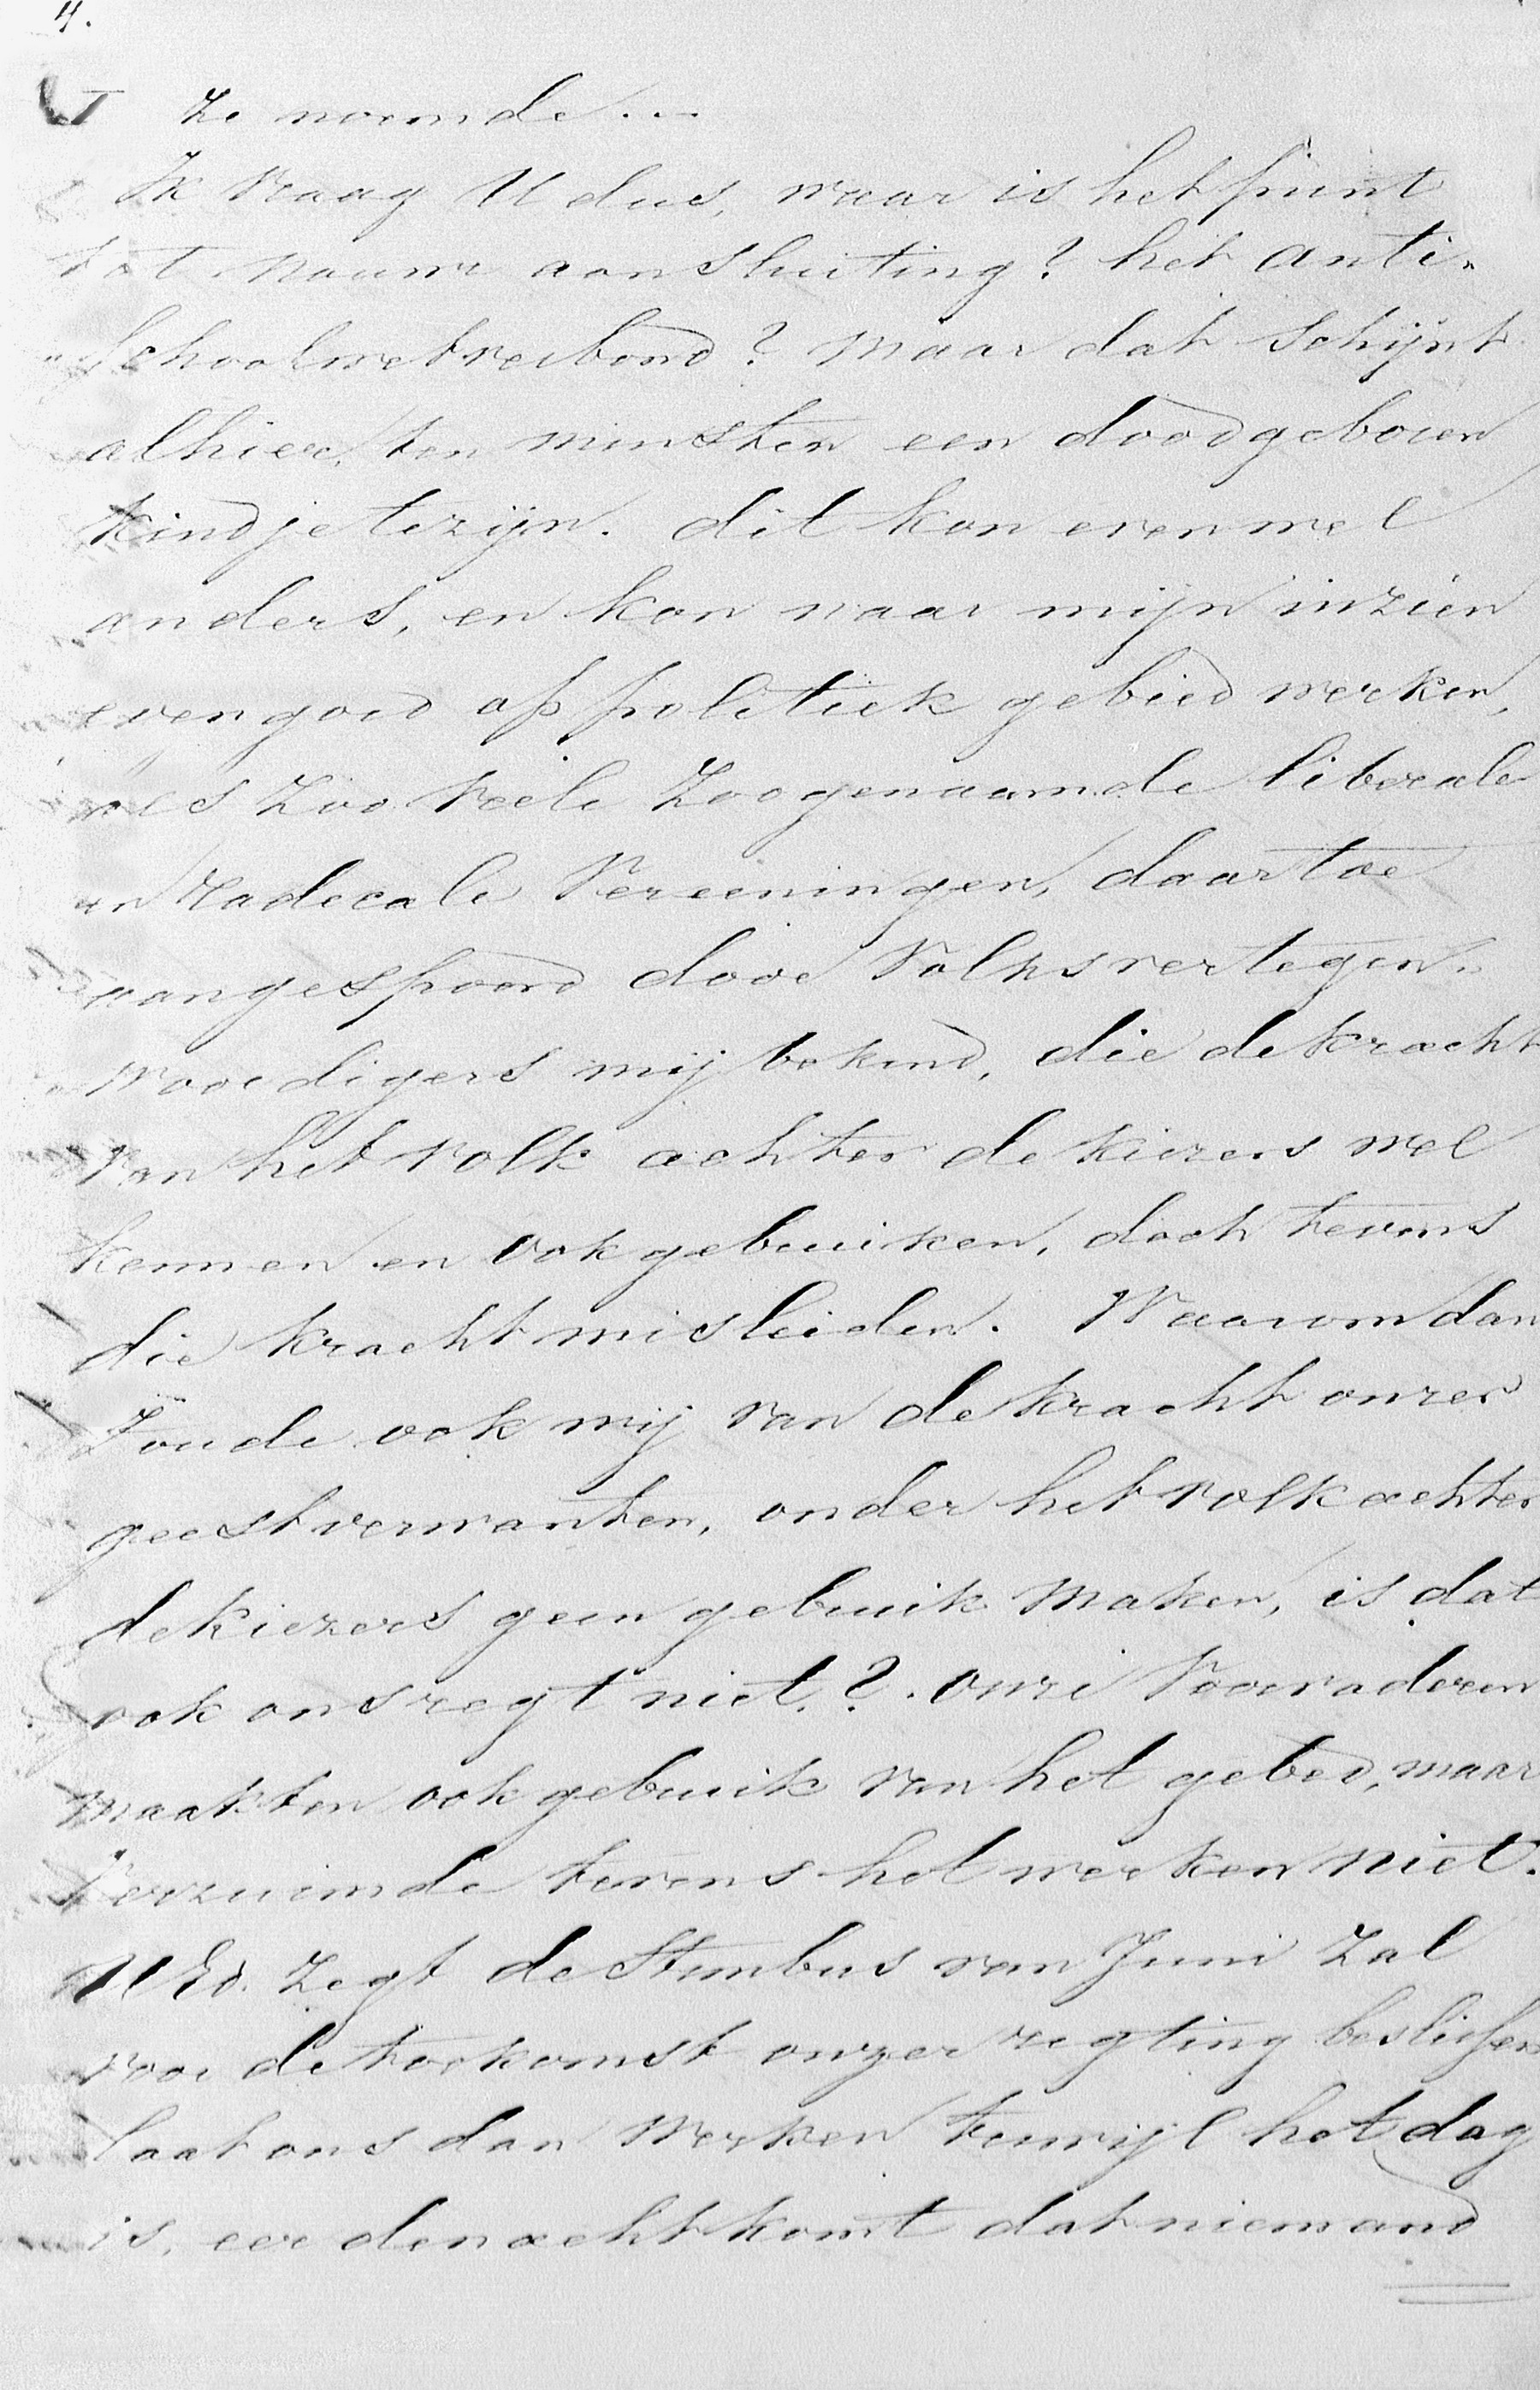 4.
ze noemde...
Ik vraag U dus, waar is het punt
tot nauwe aansluiting? het anti-
"schoolwetverbond? maar dat schijnt
alhier, ten minsten een doodgeboren
kindje te zijn. dit kan evenwel
anders, en kan naar mijn inzien
evengoed op politiek gebied werken,
als zoo veele zoogenaamde liberale
en Radecale Vereeningen, daartoe
aangespoord door Volksvertegen-
woordigers mij bekend, die de kracht
van het volk achter de kiezers wel
kennen en ook gebruiken, doch tevens
die kracht misleiden. Waarom dan
Zoude ook wij van de kracht onzer
geestverwanten, onder het volk achter
de kiezers geen gebruik maken, is dat
ook ons regt niet.? . Onze Voorvaderen
maakten ook gebruik van het gebed, maar
Verzuimde tevens het werken niet.
UEd. zegt de Stembus van Juni zal
voor de toekomst onzer regting beslissen
laat ons dan werken terwijl het dag
is, eer de nacht komt dat niemand